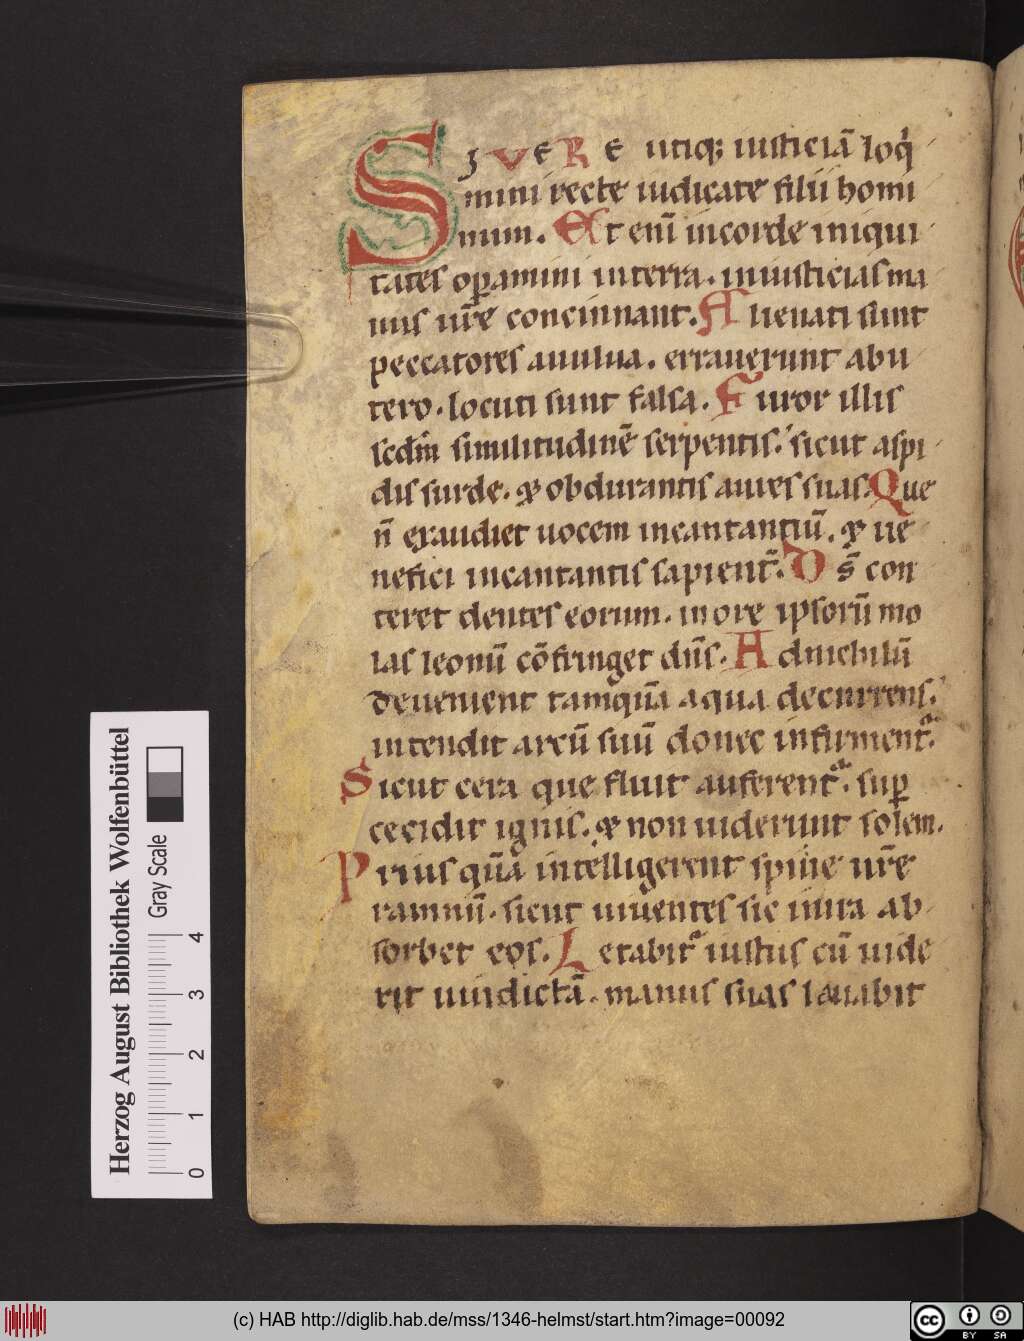 SI VERE utiq; iusticiā loq̇
mini recte iudicate filii homi
num. Et eni̅ in corde iniqui
tates op̱amini in terra. iniusticias ma
nus ur̅e concinnant. Alienati sunt
peccatores a uulua. errauerunt ab u
tero. locuti sunt falsa. Furor illis
scd̅m similitudinē serpentis. sicut aspi
dis surde. & obdurantis aures suas. Que
n̄ exaudiet uocem incantantiū. & ue
nefici incantantis sapient̄. Ds̄ con
teret dentes eorum. in ore ipsorū mo
las leonū cōfringet dn̄s. Ad nichilū
deuenient tamquā aqua decurrens.
intendit arcū suū donec infirment᷑.
Sicut cera que fluit auferent᷑. sup̱
cecidit ignis. & non uiderunt solem.
Prius quā intelligerent spine ur̄e
ramnū. sicut uiuentes sic in ira ab
sorbet eos. Letabit᷑ iustus cū uide
rit uindictā. manus suas lauabit
Herzog August Bibliothek Wolfenbüttel
Gray Scale
0 1 2 3 4
(c) HAB http://diglib.hab.de/mss/1346-helmst/start.htm?image=00092
cc BY SA